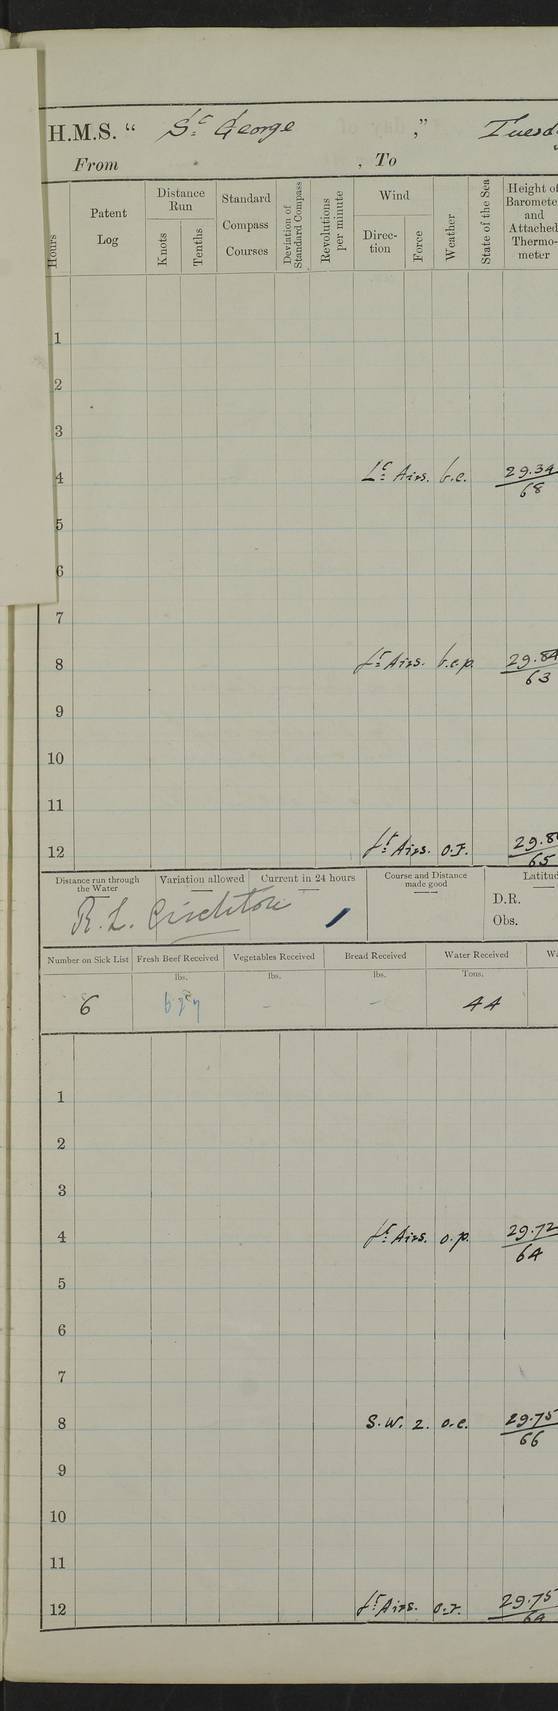 H.M.S. " St George ," Tuesd
From , To
Hours
Patent Log
Distance Run
Knots
Tenths
Standard Compass Courses
Deviation of Standard Compass
Revolutions per minute
Wind
Direc-tion
Force
Weather
State of the Sea
Height of Baromete and Attached Thermo-meter
1
2
3
4 Lt Airs. b.c. 29.34
68
5
6
7
8 Lt Airs. b.c.p. 29.84
63
9
10
11
12 Lt Airs. o.r. 29.8
65
Distance run through the Water
Variation allowed
Current in 24 hours
Course and Distance made good
Latitud
D.R.
Obs.
R. L.
Number on Sick List
Fresh Beef Received
Vegetables Received
Bread Received
Water Received
Wa
lbs.
lbs.
lbs.
Tons.
6 - - 44
1
2
3
4 Lt Airs. o.p. 29.72
64
5
6
7
8 S.W. 2. o.c. 29.75
66
9
10
11
12 Lt Airs. o.r. 29.75